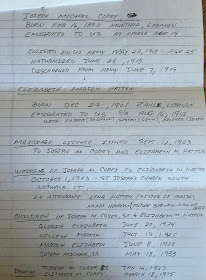 JOSEPH MICHAEL COREY
BORN FEB 16, 1892 LEBANON
EMIGRATED TO US AT APPROX AGE 14
ENLISTED IN US ARMY MAY 22, 1918 - AGE 25
NATURALIZED JUNE 28, 1918
DISCHARGED FROM ARMY JUNE 7, 1919
ELIZABETH MARION HATTEN
BORN DEC 24, 1901 ZAHLE, LEBANON
EMIGRATED TO US AUG 16, 1912
WITH
MARRIAGE LICENSE SEPT 12, 1923
TO JOSEPH M. COREY AND ELIZABETH M. HATTEN
WEDDING OF JOSEPH M. COREY TO ELIZABETH M. HATTEN
OCTOBER 1, 1923 - ST JOSEPH'S CHURCH SOUTH
NORWALK CT
IN ATTENDANCE LENA HATTEN (SISTER OF MARION)
CHILDREN OF JOSEPH M. COREY, SR & ELIZABETH M. HATTEN
ELIZABETH JUNE 20, 1924
JULY 15, 1925
MARION ELIZABETH JUNE 8, 1928
JOSEPH MICHAEL, JR MAY 18, 1933
DEATHS JOSEPH M. COREY SR JAN 2, 1957
ELIZABETH M. COREY MARCH 18, 1975